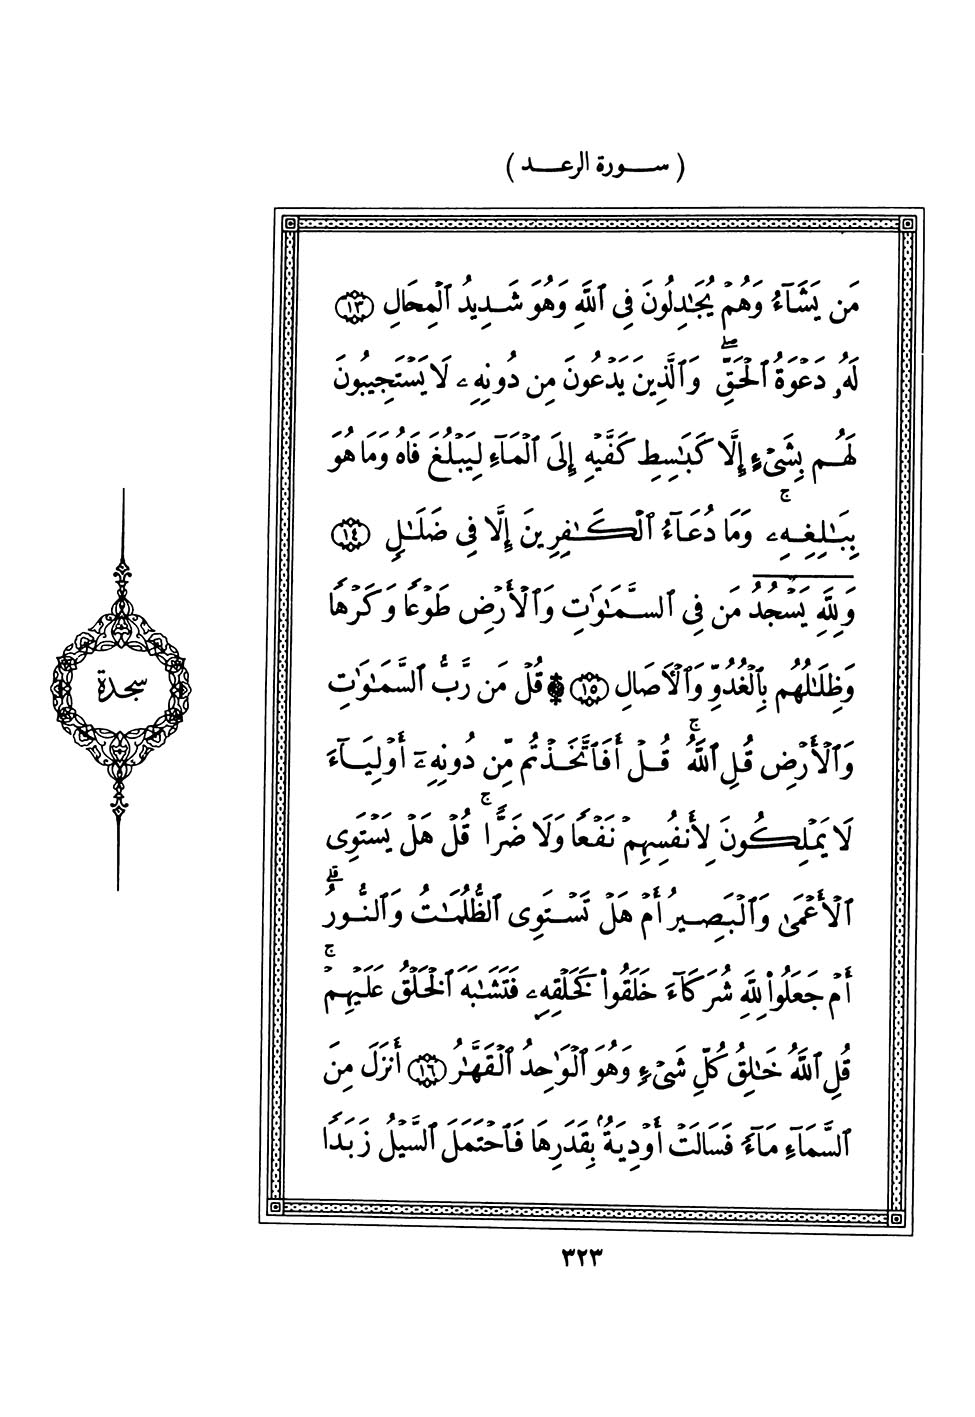 ( ســـورة الرعـــد )
مَن يَشَآءُ وَهُمۡ يُجَٰدِلُونَ فِي ٱللَّهِ وَهُوَ شَدِيدُ ٱلۡمِحَالِ ١٣
لَهُۥ دَعۡوَةُ ٱلۡحَقِّۖ وَٱلَّذِينَ يَدۡعُونَ مِن دُونِهِۦ لَا يَسۡتَجِيبُونَ
لَهُم بِشَيۡءٍ إِلَّا كَبَٰسِطِ كَفَّيۡهِ إِلَى ٱلۡمَآءِ لِيَبۡلُغَ فَاهُ وَمَا هُوَ
بِبَٰلِغِهِۦۚ وَمَا دُعَآءُ ٱلۡكَٰفِرِينَ إِلَّا فِي ضَلَٰلٖ ١٤
وَلِلَّهِ يَسۡجُدُۤ مَن فِي ٱلسَّمَٰوَٰتِ وَٱلۡأَرۡضِ طَوۡعٗا وَكَرۡهٗا
وَظِلَٰلُهُم بِٱلۡغُدُوِّ وَٱلۡأٓصَالِ ١٥ ۞ قُلۡ مَن رَّبُّ ٱلسَّمَٰوَٰتِ
وَٱلۡأَرۡضِ قُلِ ٱللَّهُۚ قُلۡ أَفَٱتَّخَذۡتُم مِّن دُونِهِۦٓ أَوۡلِيَآءَ
لَا يَمۡلِكُونَ لِأَنفُسِهِمۡ نَفۡعٗا وَلَا ضَرّٗاۚ قُلۡ هَلۡ يَسۡتَوِي
ٱلۡأَعۡمَىٰ وَٱلۡبَصِيرُ أَمۡ هَلۡ تَسۡتَوِي ٱلظُّلُمَٰتُ وَٱلنُّورُۗ
أَمۡ جَعَلُواْ لِلَّهِ شُرَكَآءَ خَلَقُواْ كَخَلۡقِهِۦ فَتَشَٰبَهَ ٱلۡخَلۡقُ عَلَيۡهِمۡۚ
قُلِ ٱللَّهُ خَٰلِقُ كُلِّ شَيۡءٖ وَهُوَ ٱلۡوَٰحِدُ ٱلۡقَهَّٰرُ ١٦ أَنزَلَ مِنَ
ٱلسَّمَآءِ مَآءٗ فَسَالَتۡ أَوۡدِيَةُۢ بِقَدَرِهَا فَٱحۡتَمَلَ ٱلسَّيۡلُ زَبَدٗا
سجدة
٣٢٣